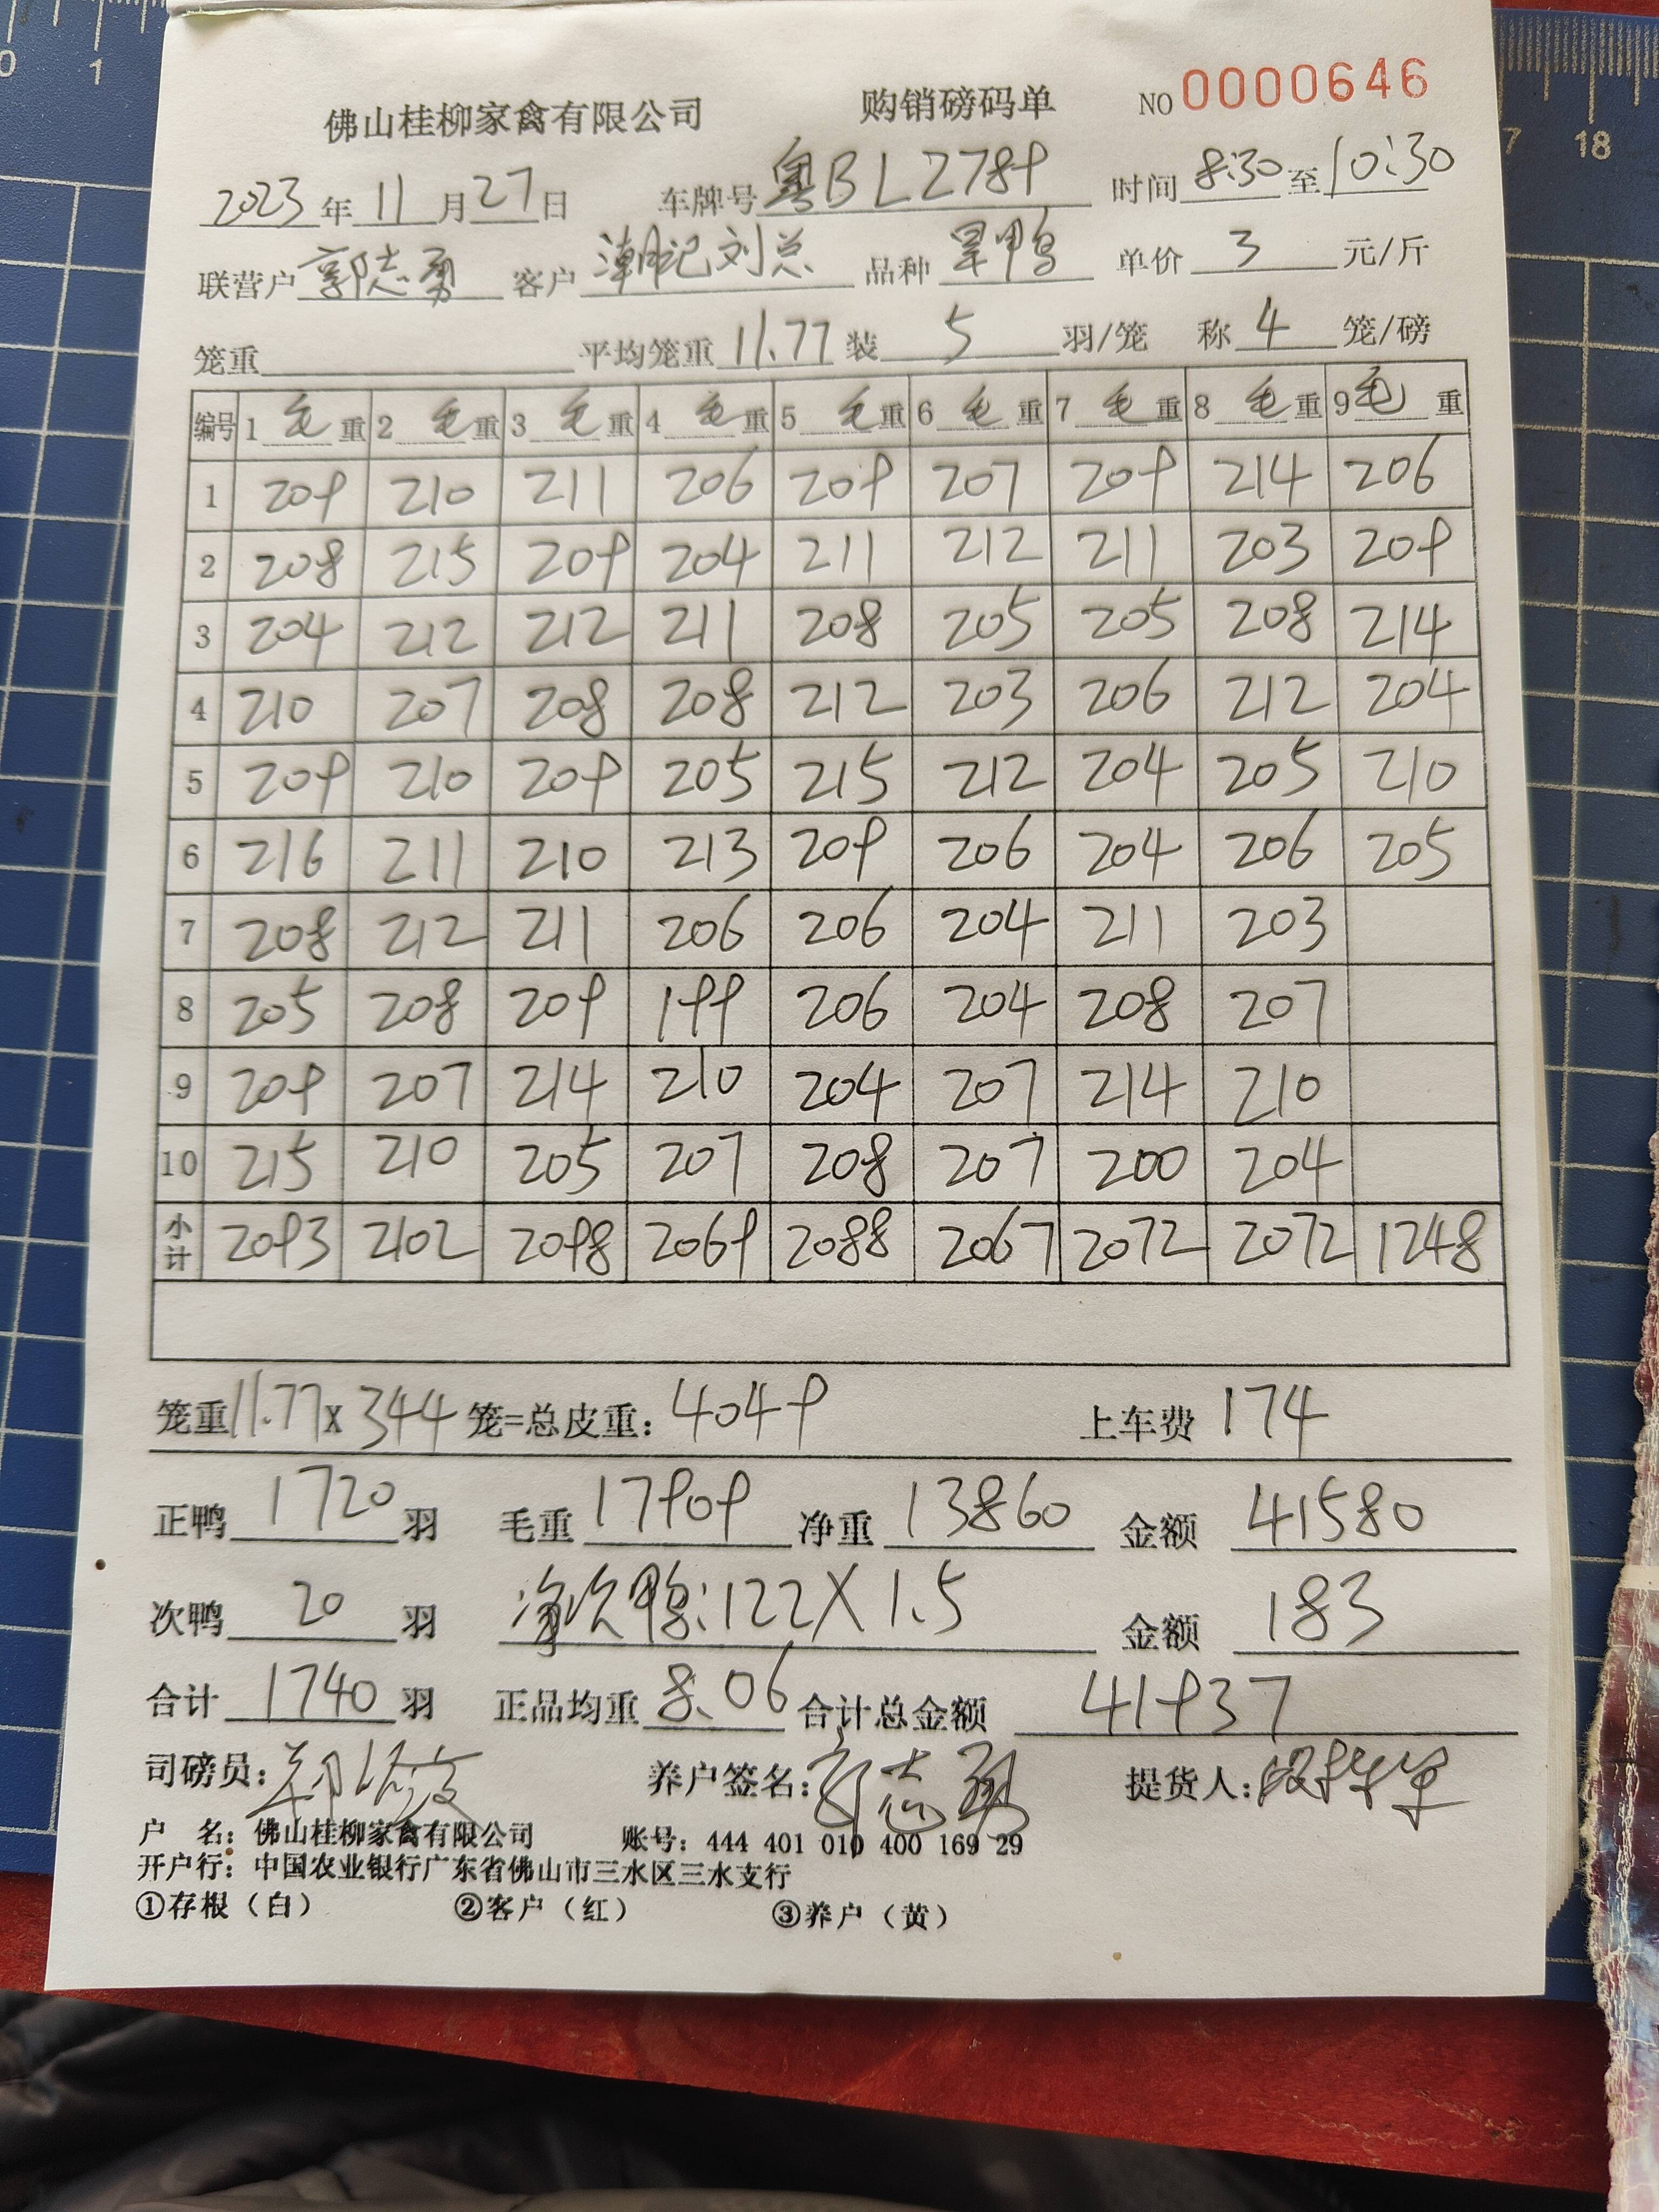 佛山桂柳家禽有限公司 购销磅码单 NO 0000646
2023年11月27日 车牌号粤BL2789 时间8:30至10:30
联营户郭志勇 客户潮记刘总 品种旱鸭 单价3元/斤
笼重 平均笼重11.77装5羽/笼 称4笼/磅
编号 1毛重 2毛重 3毛重 4毛重 5毛重 6毛重 7毛重 8毛重 9毛重
1 209 210 211 206 209 207 209 214 206
2 208 215 209 204 211 212 211 203 209
3 204 212 212 211 208 205 205 208 214
4 210 207 208 208 212 203 206 212 204
5 209 210 209 205 215 212 204 205 210
6 216 211 210 213 209 206 204 206 205
7 208 212 211 206 206 204 211 203
8 205 208 209 199 206 204 208 207
9 209 207 214 210 204 207 214 210
10 215 210 205 207 208 207 200 204
小计 2093 2102 2098 2069 2088 2067 2072 2072 1248
笼重11.77X344笼=总皮重：4049 上车费174
正鸭1720羽 毛重17909净重13860 金额41580
次鸭20羽 净次鸭:122X1.5 金额183
合计1740羽 正品均重8.06合计总金额41937
司磅员： 养户签名：郭志勇 提货人：
户 名：佛山桂柳家禽有限公司 账号：444 401 010 400 169 29
开户行：中国农业银行广东省佛山市三水区三水支行
①存根（白） ②客户（红） ③养户（黄）
0 1 17 18